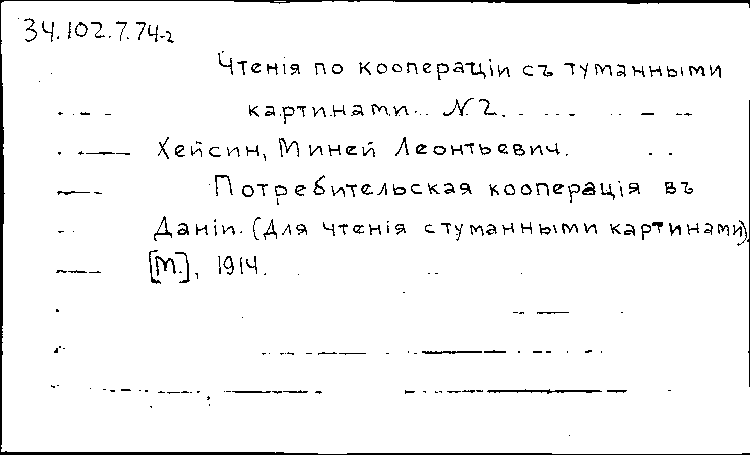 34.102.7.74-2
Чтенія по коопераціи съ туманными
картинами. N.2.
Хейсин, Миней Леонтьевич.
Потребительская кооперація въ
Даніи. (Для чтенія с туманными картинами).
[М.], 1914.